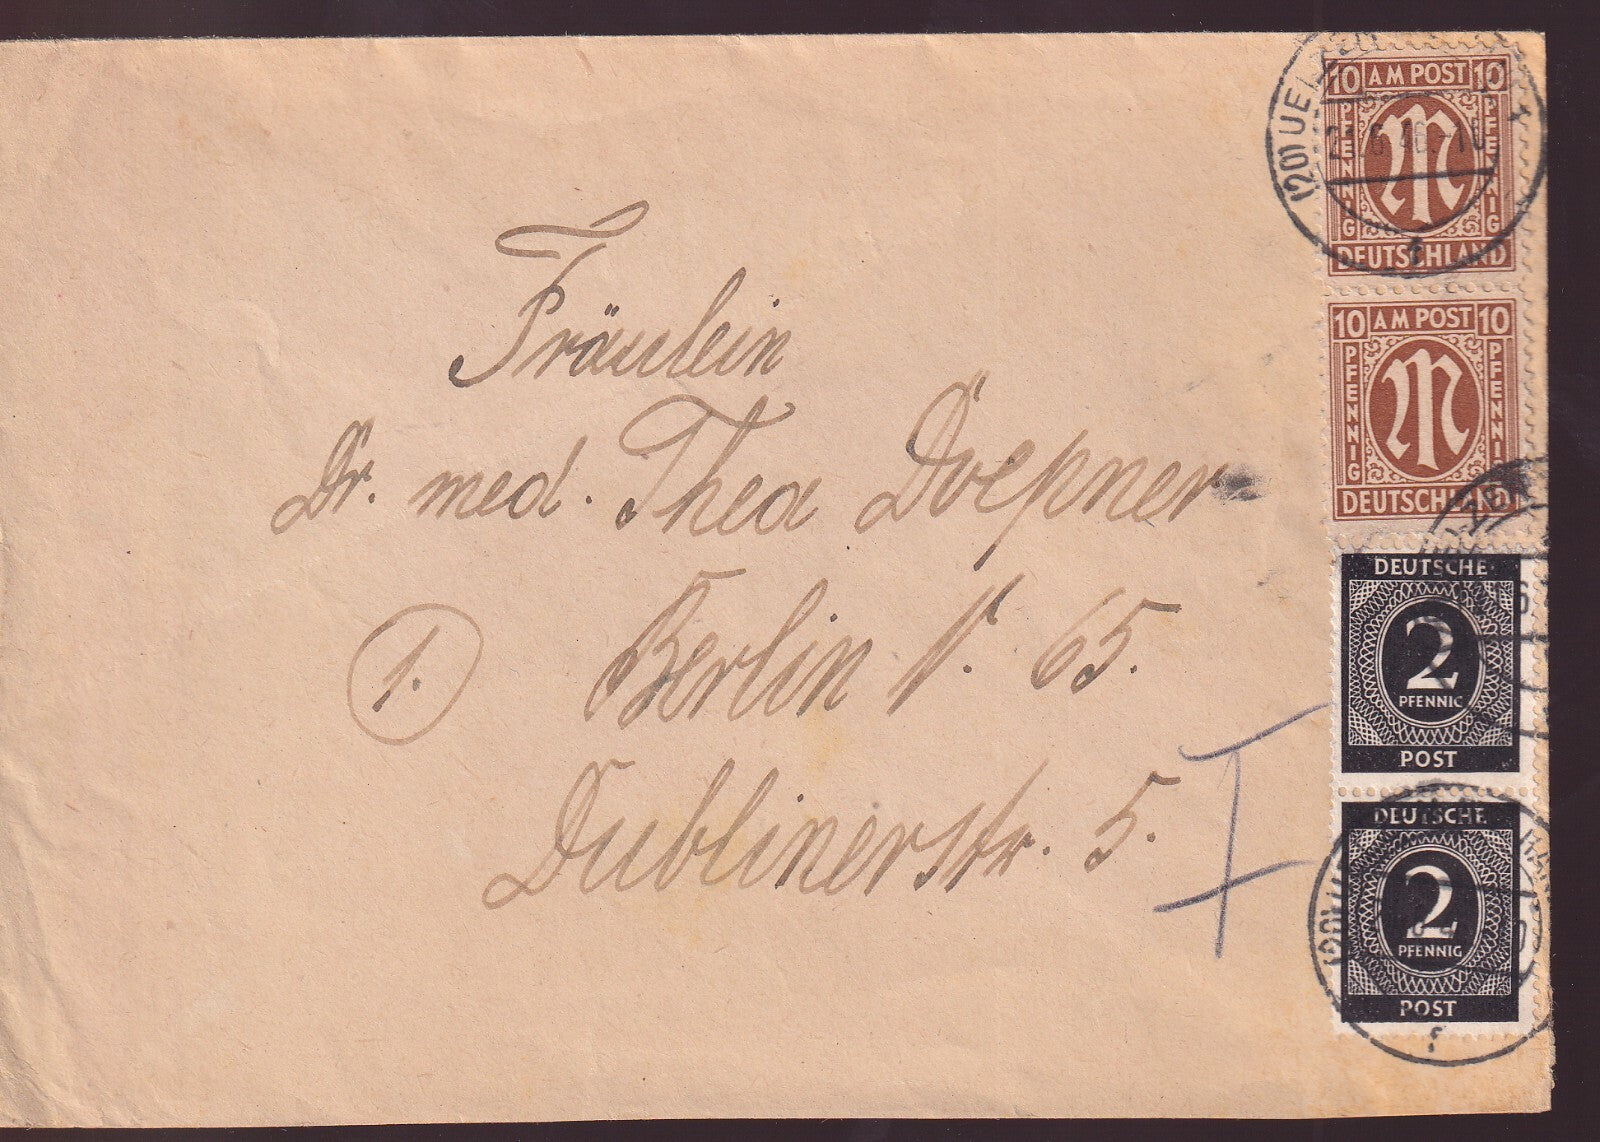 Fräulein
Dr. med. Thea Doepner
1. Berlin N. 65.
Dublinerstr. 5.
I
10 AM POST 10
PFENNIG PFENNIG
DEUTSCHLAND
10 AM POST 10
PFENNIG PFENNIG
DEUTSCHLAND
DEUTSCHE
2
PFENNIG
POST
DEUTSCHE
2
PFENNIG
POST
(20) UELZEN
f
(20)
HAN
f